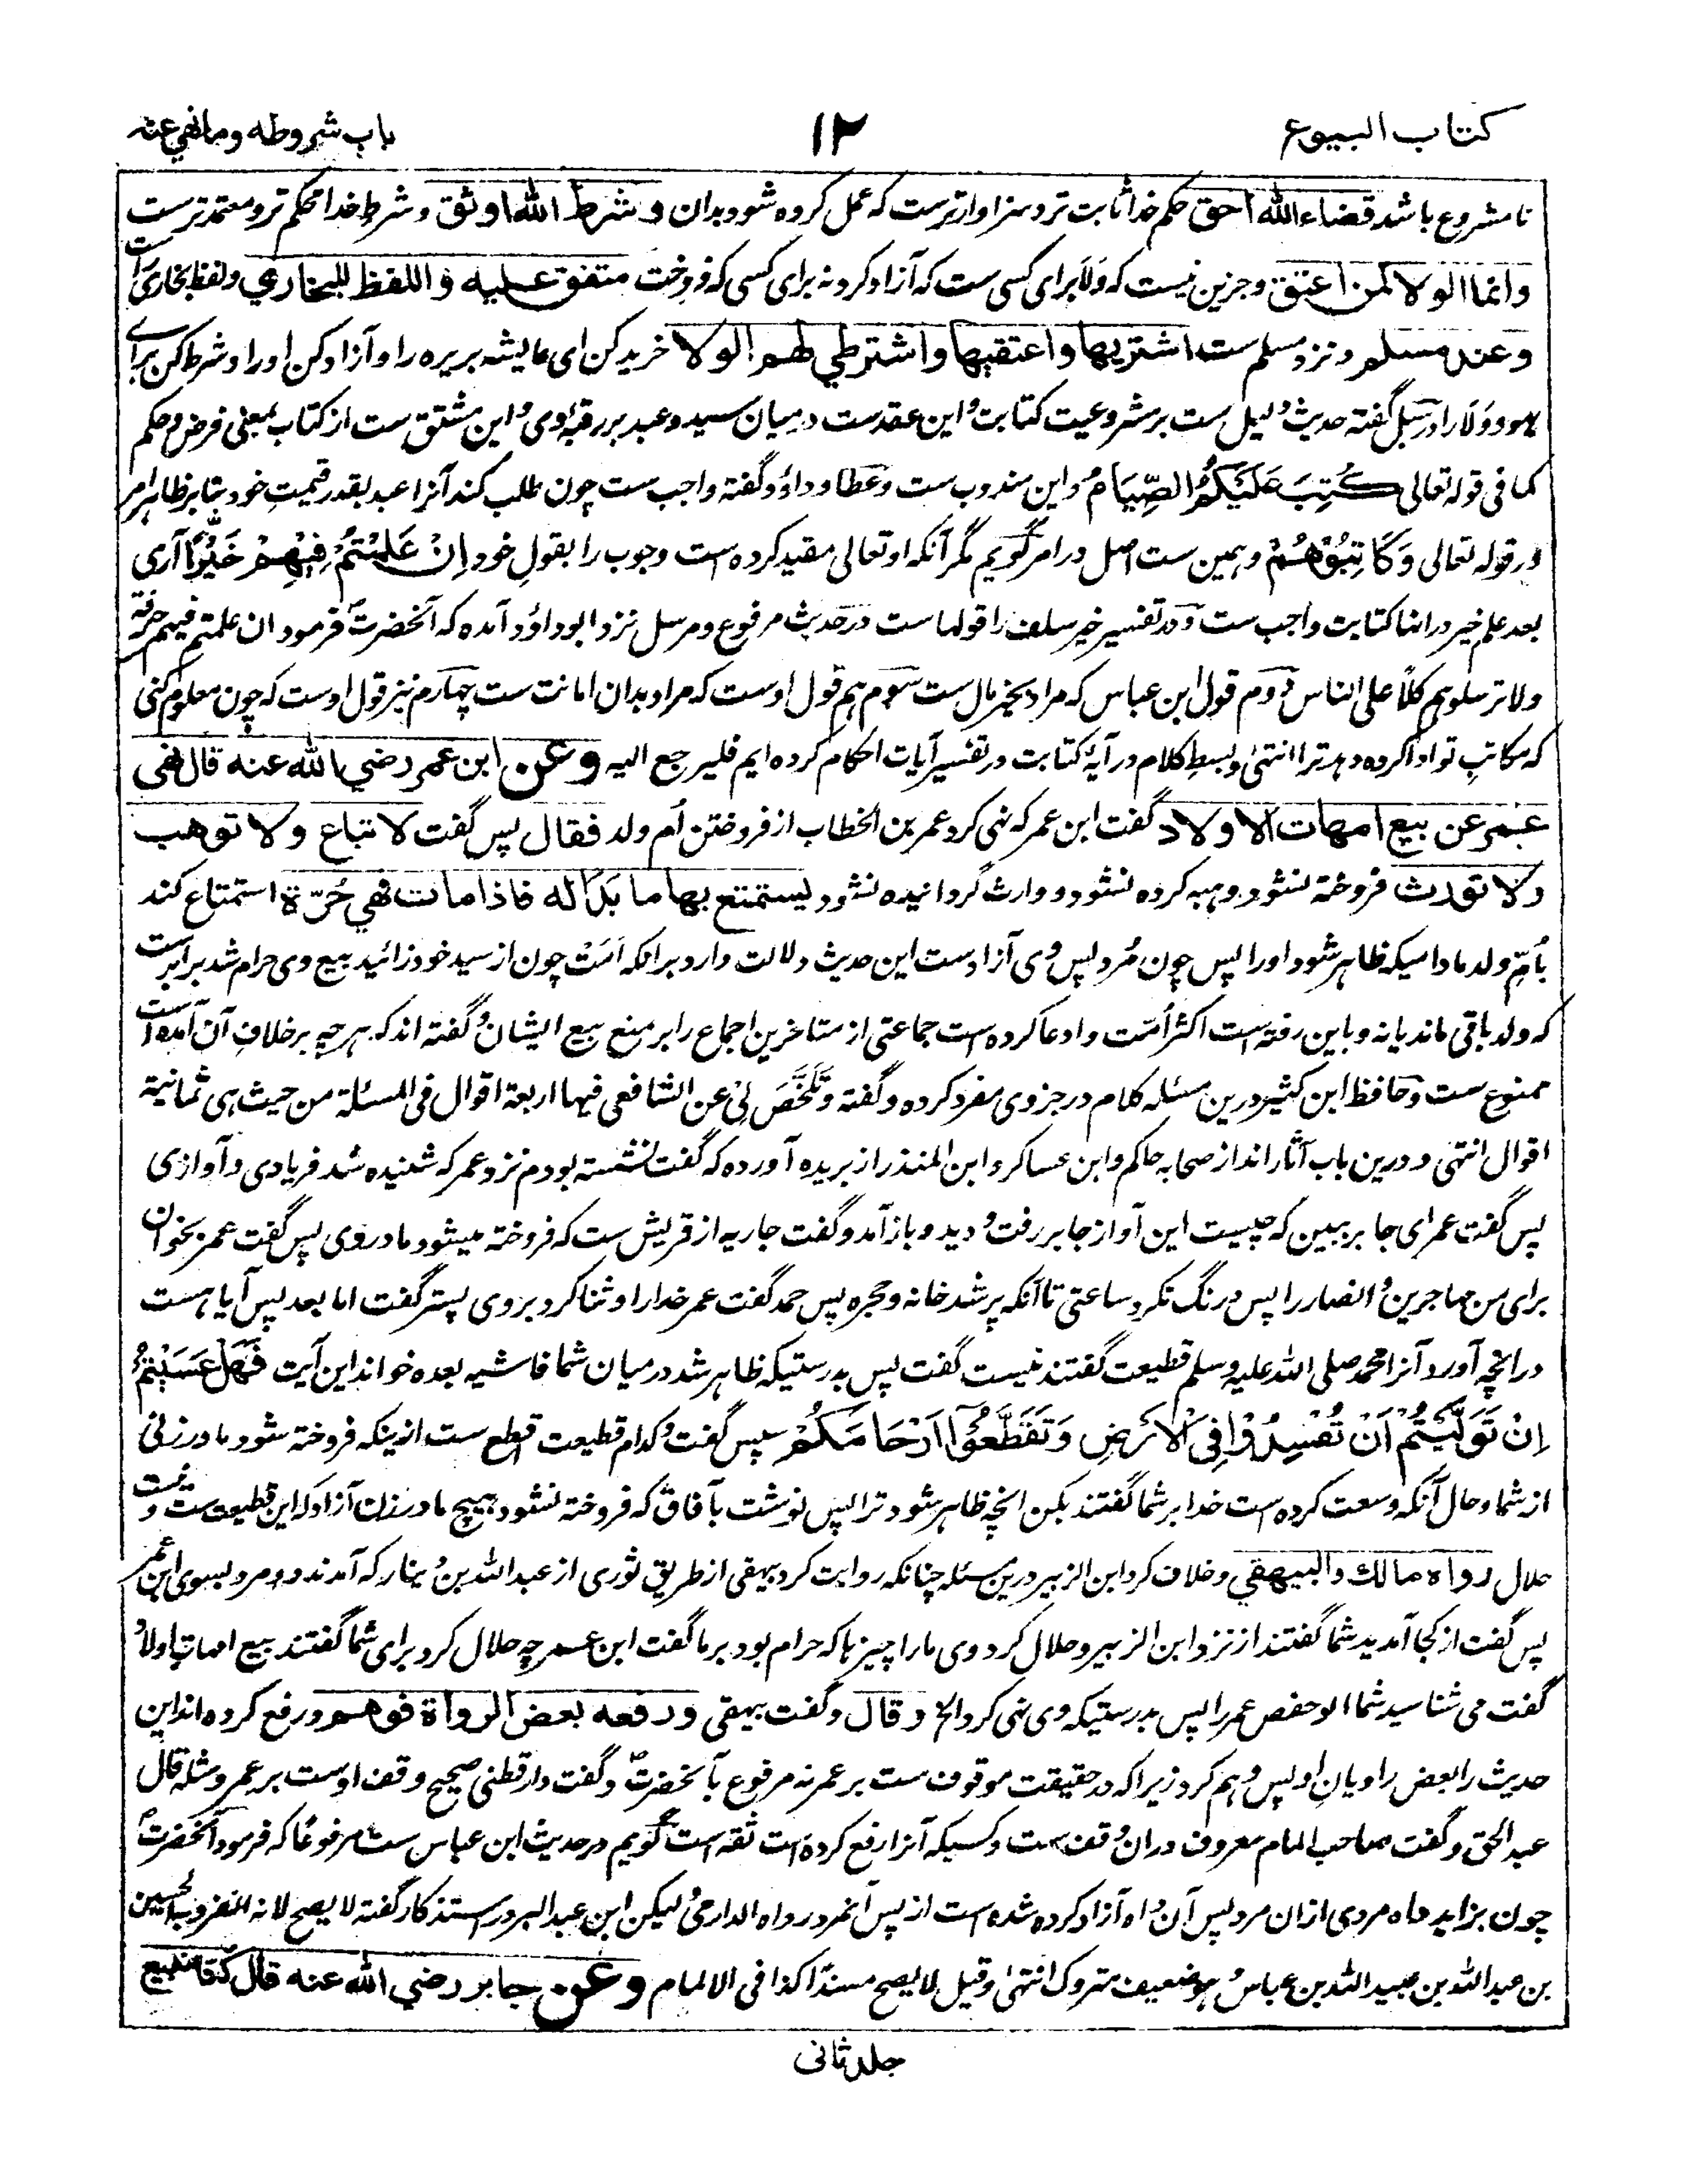 كتاب البيوع
١٢
باب شروطه وما نهي عنه
نا مشروع باشد قضاء الله احق حکم خدا ثابت تر و سزاوارترست که عمل کرده شود بدان و شرط الله اوثق و شرط خدا محکم تر و معتمد ترست
وانما الولا لمن اعتق و جزین نیست که ولا برای کسی ست که آزاد کرد نه برای کسی که فروخت متفق عليه واللفظ للبخاري و لفظ بخاری راست
وعند مسلم و نزد مسلم ست اشتريها واعتقيها واشترطي لهم الولا خرید کن ای عایشه بریره را و آزاد کن او را و شرط کن برای
یهود ولا را در سبل گفته حدیث دلیل ست بر مشروعیت کتابت و این عقدست درمیان سید و عبد بر رقبهٔ وی و این مشتق ست از کتاب بمعنی فرض و حکم
کما فی قوله تعالی كُتِبَ عَلَيْكُمُ الصِّيَامُ و این مندوب ست و عطا و داؤد گفته واجب ست چون طلب کند آنرا عبد بقدر قیمت خود بنا بر ظاهر امر
در قوله تعالی وَكَاتِبُوْهُمْ و همین ست اصل در امر گویم مگر آنکه او تعالی مقید کرده است وجوب را بقول خود اِنْ عَلِمْتُمْ فِيْهِمْ خَيْرًا آری
بعد علم خیر در انها کتابت واجب ست و در تفسیر خیر سلف را قولها ست در حدیث مرفوع و مرسل نزد ابوداؤد آمده که آنحضرتؐ فرمود ان علمتم فیهم حرفة
ولا ترسلوهم کلاً علی الناس دوم قول ابن عباس که مراد بخیر مال ست سوم هم قول اوست که مراد بدان امانت ست چهارم نیز قول اوست که چون معلوم کنی
که مکاتب تو ادا کرده دهد ترا انتهی و بسط کلام در آیهٔ کتابت در تفسیر آیات احکام کرده ایم فلیرجع الیه وعن ابن عمر رضي الله عنه قال نهى
عمر عن بيع امهات الاولاد گفت ابن عمر که نهی کرد عمر بن الخطاب از فروختن اُم ولد فقال پس گفت لا تباع ولا توهب
ولا تورث فروخته نشود و هبه کرده نشود و وارث گردانیده نشود يستمتع بها ما بدا له فاذا مات فهي حُرّة استمتاع کند
بأمّ ولد مادامیکه ظاهر شود او را پس چون مُرد پس وی آزادست این حدیث دلالت دارد برانکه اَمَتْ چون از سید خود زائید بیع وی حرام شد برابرست
که ولد باقی ماند یا نه و باین رفته است اکثر اُمت و ادعا کرده است جماعتی از متاخرین اجماع را بر منع بیع ایشان و گفته اند که هر چه برخلاف آن آمده است
ممنوع ست و حافظ ابن کثیر درین مسئله کلام در جزوی مفرد کرده و گفته و تَلَخَّصَ لِیْ عن الشافعی فیها اربعة اقوال فی المسئلة من حیث هی ثمانیة
اقوال انتهی و درین باب آثار اند از صحابه حاکم و ابن عساکر و ابن المنذر از بریده آورده که گفت نشسته بودم نزد عمر که شنیده شد فریادی و آوازی
پس گفت عمر ای جابر ببین که چیست این آواز جابر رفت و دید و باز آمد و گفت جاریه از قریش ست که فروخته میشود مادر وی پس گفت عمر بخوان
برای من مهاجرین و انصار را پس درنگ نکرد ساعتی تا آنکه پر شد خانه و حجره پس حمد گفت عمر خدا را و ثنا کرد بر وی پستر گفت اما بعد پس آیا هست
در انچه آورد آنرا محمد صلی الله علیه وسلم قطیعت گفتند نیست گفت پس بدرستیکه ظاهر شد درمیان شما فاشیه بعده خواند این آیت فَهَلْ عَسَيْتُمْ
اِنْ تَوَلَّيْتُمْ اَنْ تُفْسِدُوْا فِى الْاَرْضِ وَتُقَطِّعُوْٓا اَرْحَامَكُمْ سپس گفت و کدام قطیعت اقطع ست ازینکه فروخته شود مادر زنی
از شما و حال آنکه وسعت کرده است خدا بر شما گفتند بکن انچه ظاهر شود ترا پس نوشت بآفاق که فروخته نشود هیچ مادر زن آزاد که این قطیعت ست و نیست
حلال رواه مالك والبيهقي و خلاف کرد ابن الزبیر درین مسئله چنانکه روایت کرد بیهقی از طریق ثوری از عبد الله بن دینار که آمدند دو مرد بسوی ابن عمر
پس گفت از کجا آمدید شما گفتند از نزد ابن الزبیر و حلال کرد وی ما را چیزها که حرام بود بر ما گفت ابن عمر چه حلال کرد برای شما گفتند بیع امهات اولاد
گفت می شناسید شما ابو حفص عمر را پس بدرستیکه وی نهی کرد الخ وقال و گفت بیهقی ورفعه بعض الرواة فوهم و رفع کرده اند این
حدیث را بعض راویان او پس وهم کرد زیرا که در حقیقت موقوف ست بر عمر نه مرفوع بآنحضرتؐ و گفت دارقطنی صحیح وقف اوست بر عمر و مثله قال
عبد الحق و گفت صاحب المام معروف دران وقف ست و کسیکه آنرا رفع کرده است ثقه است گویم در حدیث ابن عباس ست مرفوعًا که فرمود آنحضرتؐ
چون بزاید داه مردی ازان مرد پس آن داه آزاد کرده شده است از پس آنمرد رواه الدارمی و لیکن ابن عبد البر در استذکار گفته لا یصح لانه انفرد به الحسین
بن عبد الله بن عبید الله بن عباس و هو ضعیف متروک انتهی و قیل لا یصح مسنداً کذا فی الالمام وعن جابر رضي الله عنه قال كنا نبيع
جلد ثانی